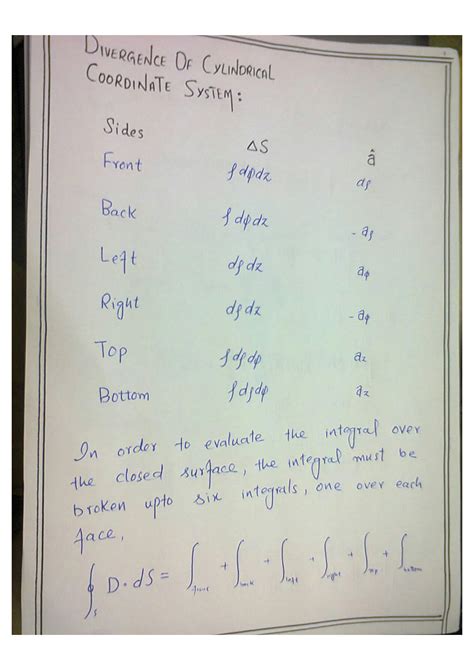 DIVERGENCE OF CYLINDRICAL
COORDINATE SYSTEM:
Sides ΔS â
Front ρdφdz aρ
Back ρdφdz -aρ
Left dρdz aφ
Right dρdz -aφ
Top ρdρdφ az
Bottom ρdρdφ az
In order to evaluate the integral over
the closed surface, the integral must be
broken upto six integrals, one over each
face,
∮s D·dS = ∫front + ∫back + ∫left + ∫right + ∫top + ∫bottom